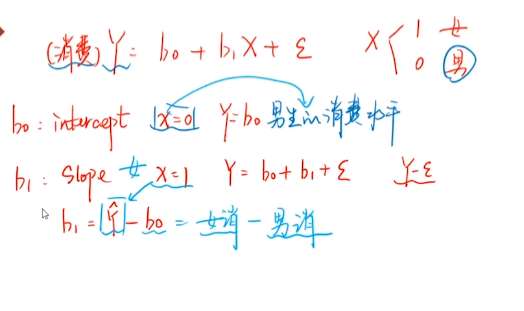 (消费) Y = b0 + b1X + ε X { 1 女
0 男
b0: intercept |x=0| Y=b0 男生的消费水平
b1: Slope 女 X=1 Y = b0 + b1 + ε Y-ε
b1 = |Ŷ| - b0 = 女消 - 男消